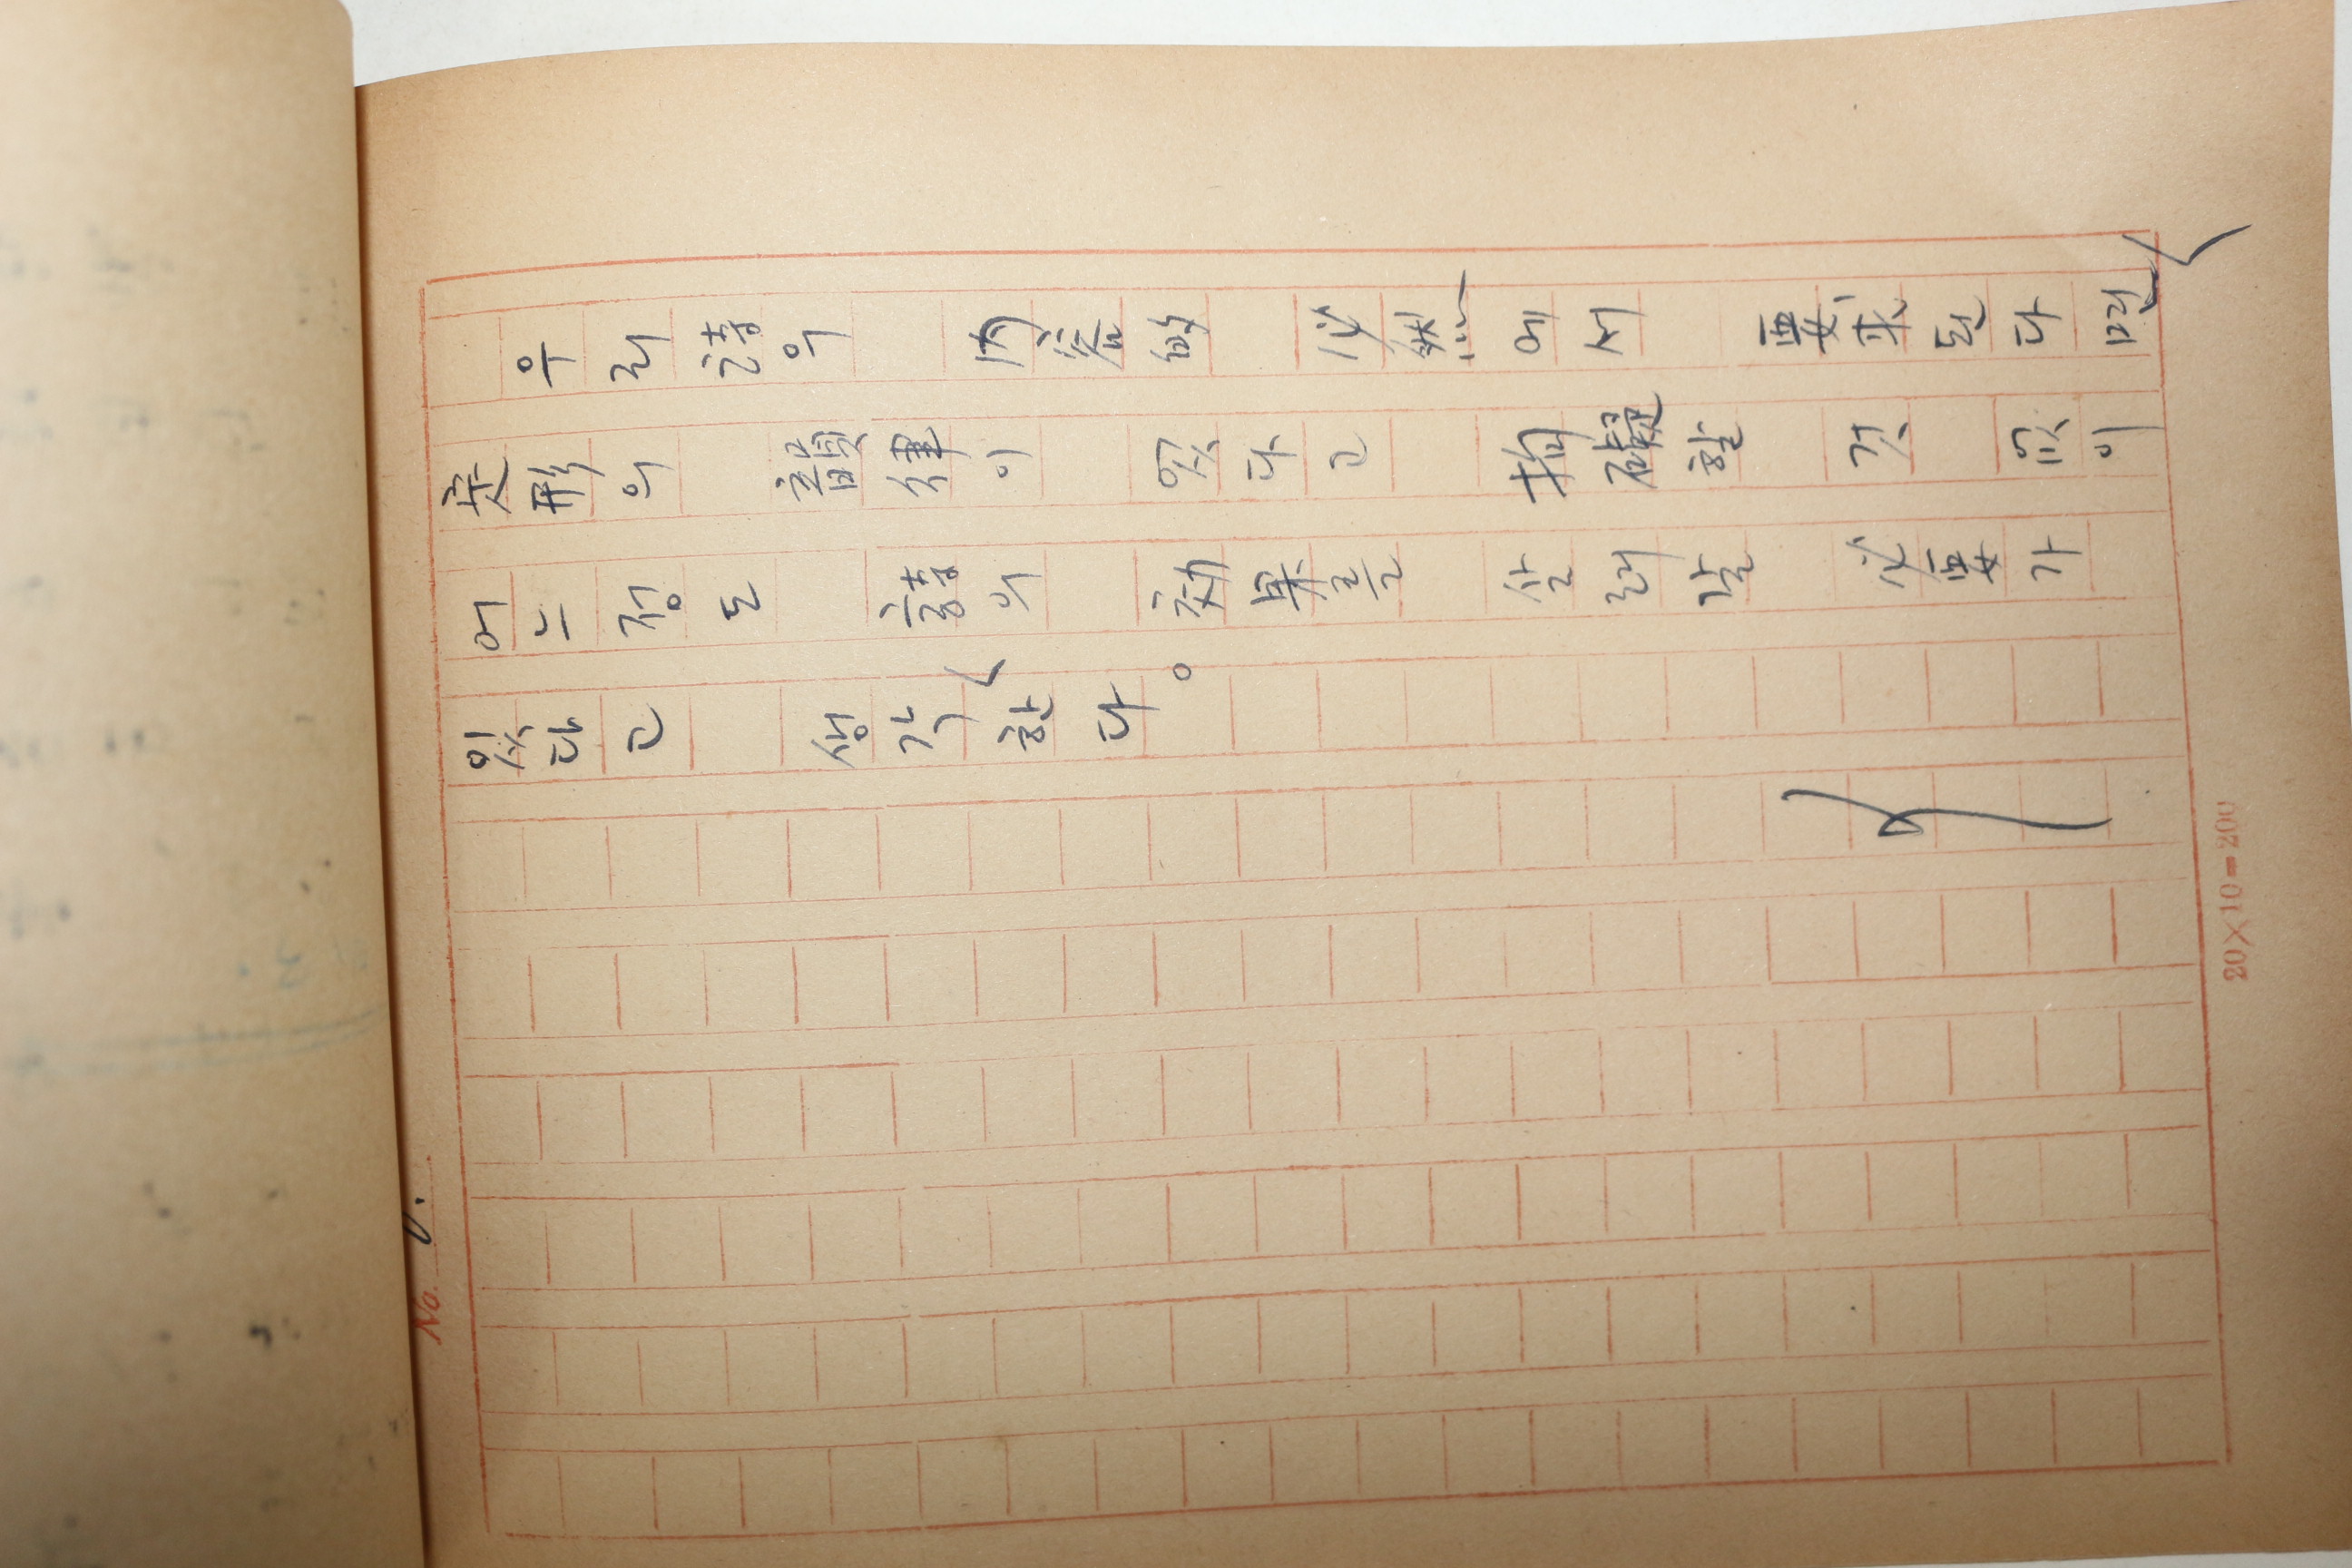 우리詩의 内容的 必然에서 要求된다면
定形의 韻律이 있다고 拘礙할 것 없이
어느정도 詩의 効果를 살려갈 必要가
있다고 생각한다。
No.
20×10=200